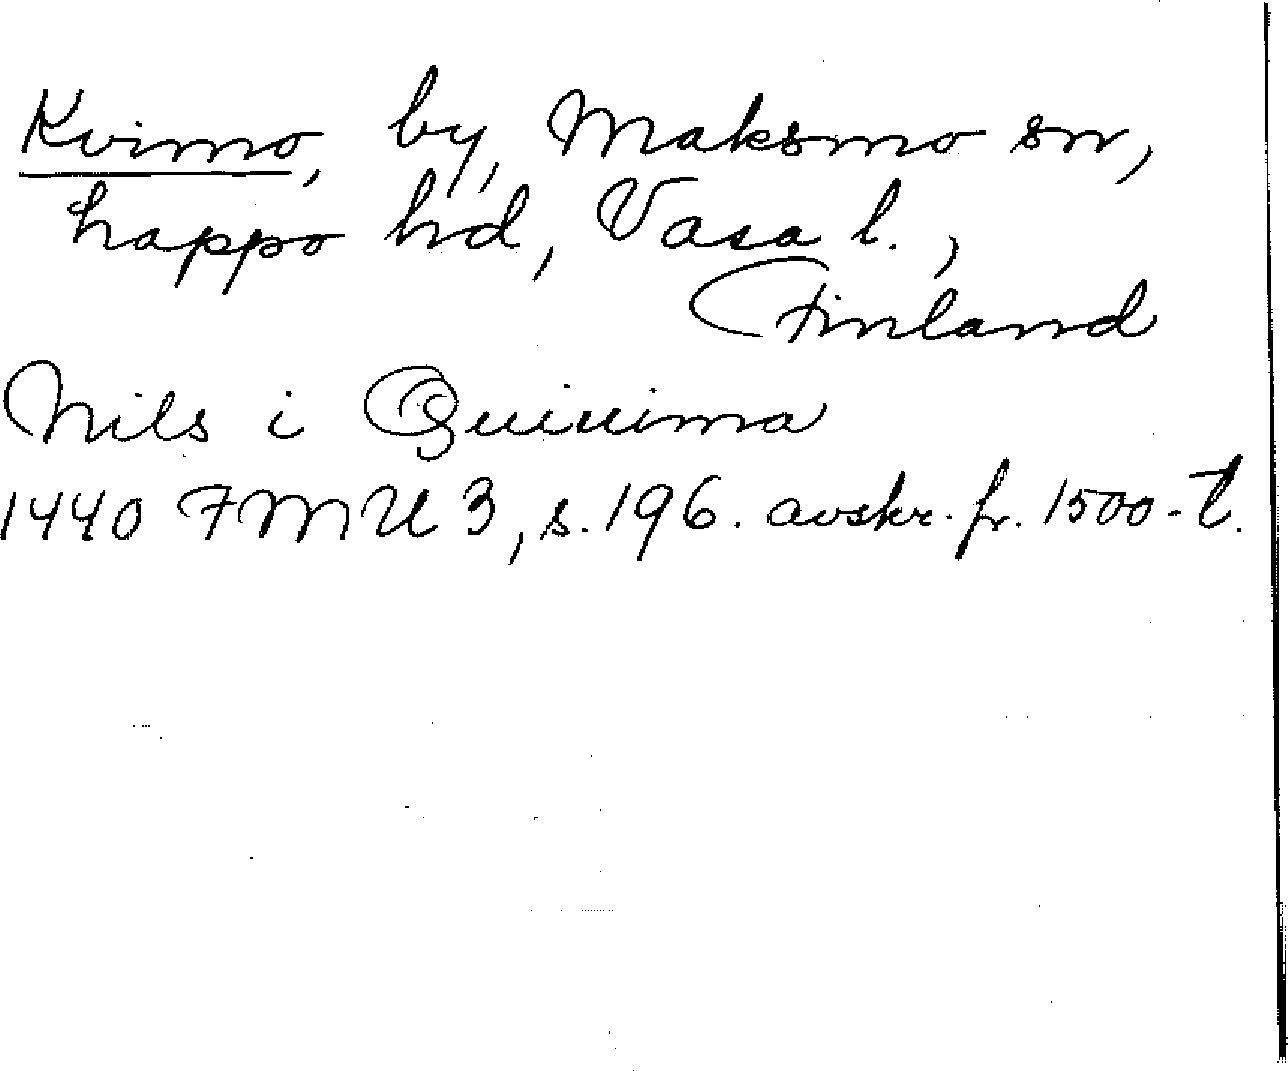 Kvimo, by, Maksmo sn,
happo hd, Vasa l.,
Finland
Nils i Quiuima
1440 FMU 3, s. 196. avskr. fr. 1500-t.